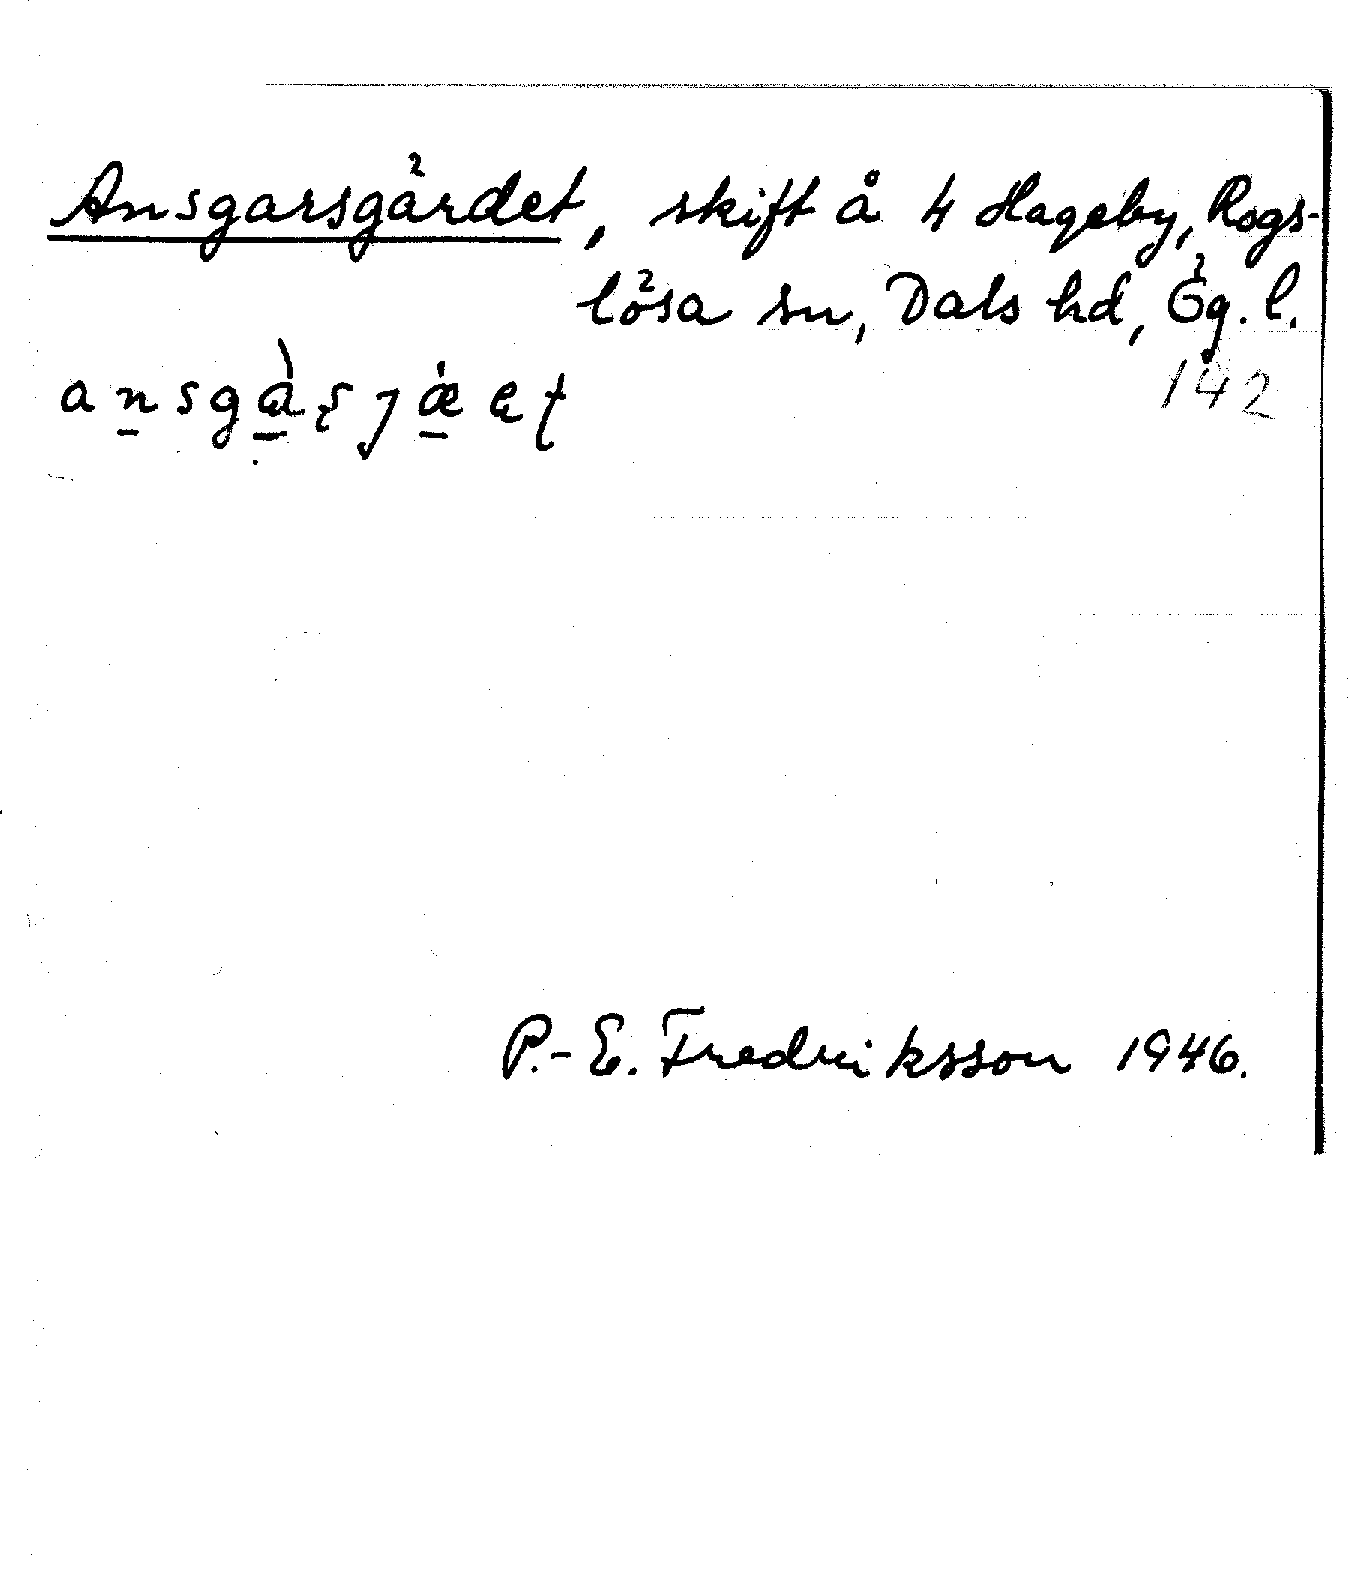 Ansgarsgärdet, skift å 4 Hageby, Rogs-
lösa sn, Dals hd, Ög. l.
142
P.-E. Fredriksson 1946.